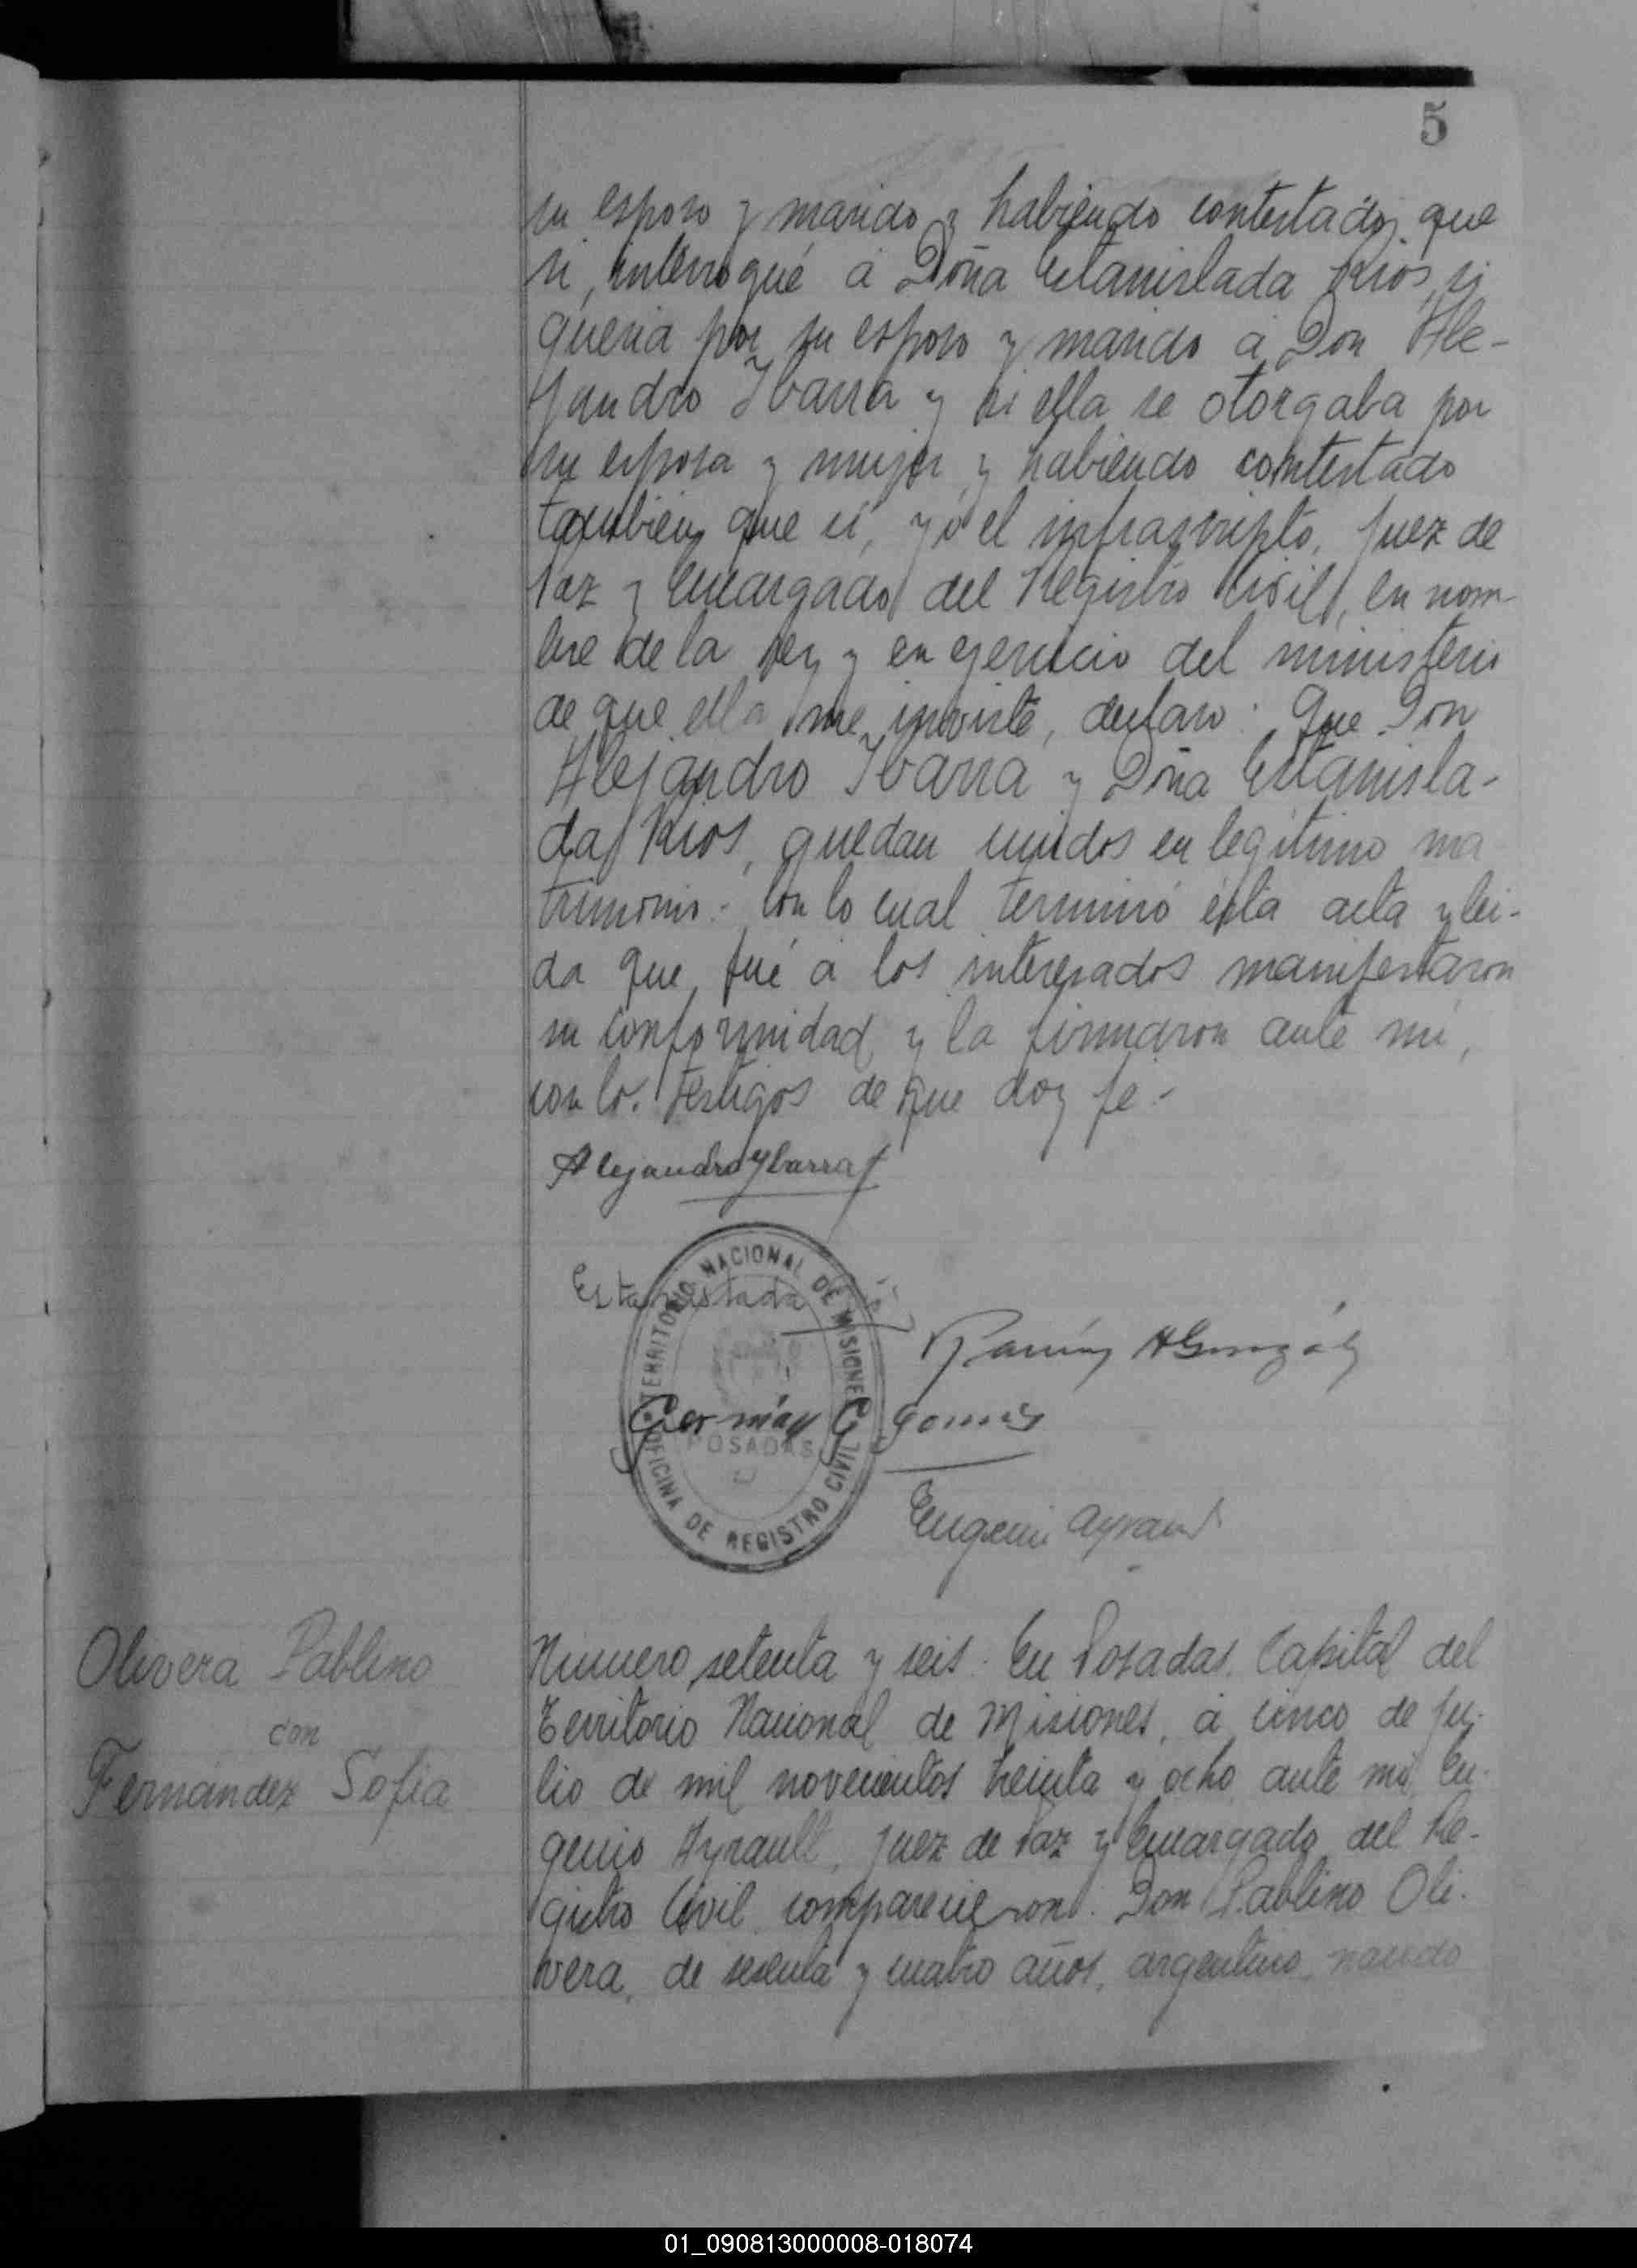 5
su esposo y marido y habiendo contestado que
si, interrogué á Doña Estanislada Rios, si
queria por su esposo y marido á Don Ale-
jandro Ibarra y si ella se otorgaba por
su esposa y mujer, y habiendo contestado
también que si, yo el infrascripto, Juez de
Paz y Encargado del Registro Civil, en nom-
bre de la Ley y en ejercicio del ministerio
de que ella me inviste, declaro: Que Don
Alejandro Ibarra y Doña Estanisla-
da Rios, quedan unidos en legitimo ma
trimonio.- Con lo cual terminó ésta acta y lei-
da que fué á los interesados manifestaron
su conformidad y la firmaron ante mi,
con los testigos de que doy fe.-
Alejandro Ybarra
Estanislada
Ramón A González
Germán G Gomez
Eugenio Ayrault
TERRITORIO NACIONAL DE MISIONES
POSADAS
OFICINA DE REGISTRO CIVIL
Olivera Pablino
con
Fernández Sofia
Número setenta y seis. En Posadas, Capital del
Territorio Nacional de Misiones, á cinco de Ju-
lio de mil novecientos treinta y ocho, ante mi, Eu-
genio Ayrault, Juez de Paz y Encargado del Re-
gistro Civil comparecieron: Don Pablino Oli-
vera, de sesenta y cuatro años, argentino, nacido
01_090813000008-018074